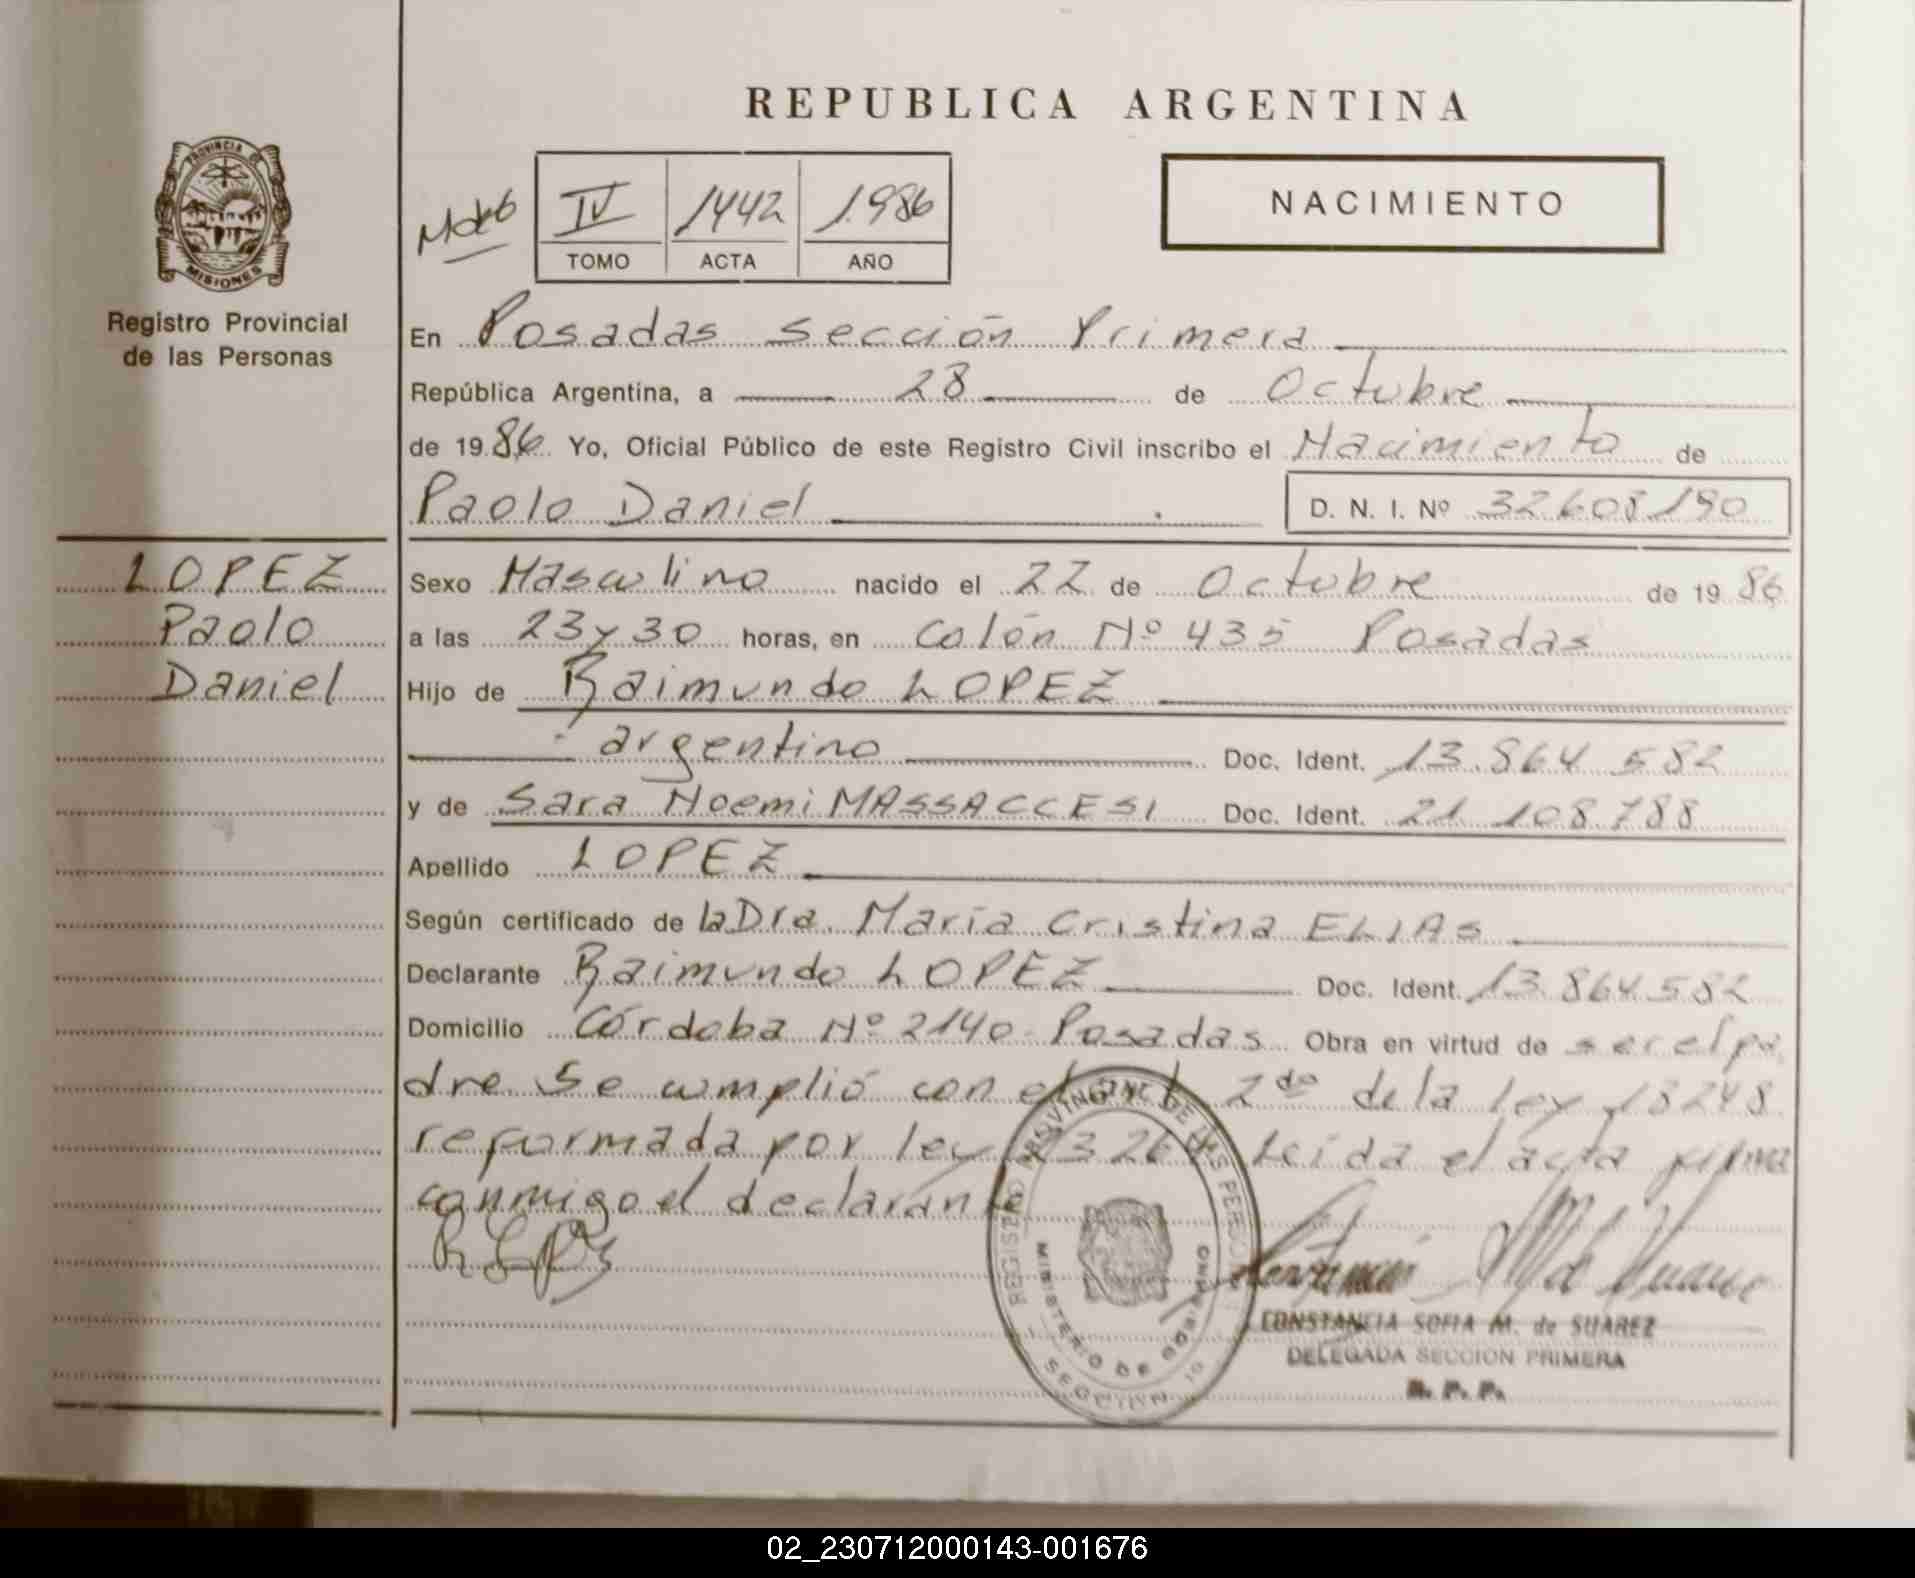 REPUBLICA ARGENTINA
PROVINCIA DE
MISIONES
Registro Provincial
de las Personas
IV 1442 1.986
TOMO ACTA AÑO
NACIMIENTO
En Posadas Sección Primera
República Argentina, a 28 de Octubre
de 1986. Yo, Oficial Público de este Registro Civil inscribo el Nacimiento de
Paolo Daniel D. N. I. Nº 32608190
LOPEZ
Paolo
Daniel
Sexo Masculino nacido el 22 de Octubre de 1986
a las 23 y 30 horas, en Colón Nº 435 Posadas
Hijo de Raimundo LOPEZ
argentino Doc. Ident. 13.864 582
y de Sara Noemi MASSACCESI Doc. Ident. 21 108.788
Apellido LOPEZ
Según certificado de la Dra. María Cristina ELIAS
Declarante Raimundo LOPEZ Doc. Ident. 13.864.582
Domicilio Córdoba Nº 2140 - Posadas Obra en virtud de ser el pa
dre. Se cumplió con el 2do de la ley 18248
reformada por ley Leida el acta firma
conmigo el declarante
REGISTRO PROVINCIAL DE LAS PERSONAS
MINISTERIO DE GOBIERNO
SECCION 10
CONSTANCIA SOFIA M. de SUAREZ
DELEGADA SECCION PRIMERA
R. P. P.
02_230712000143-001676